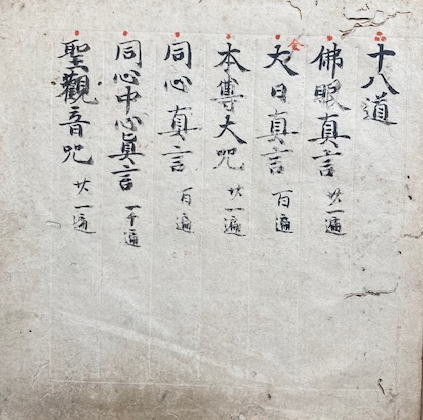 十八道
佛眼真言 廿一遍
金
大日真言 百遍
本尊大呪 廿一遍
同心真言 百遍
同心中心眞言 一千遍
聖觀音呪 廿一遍